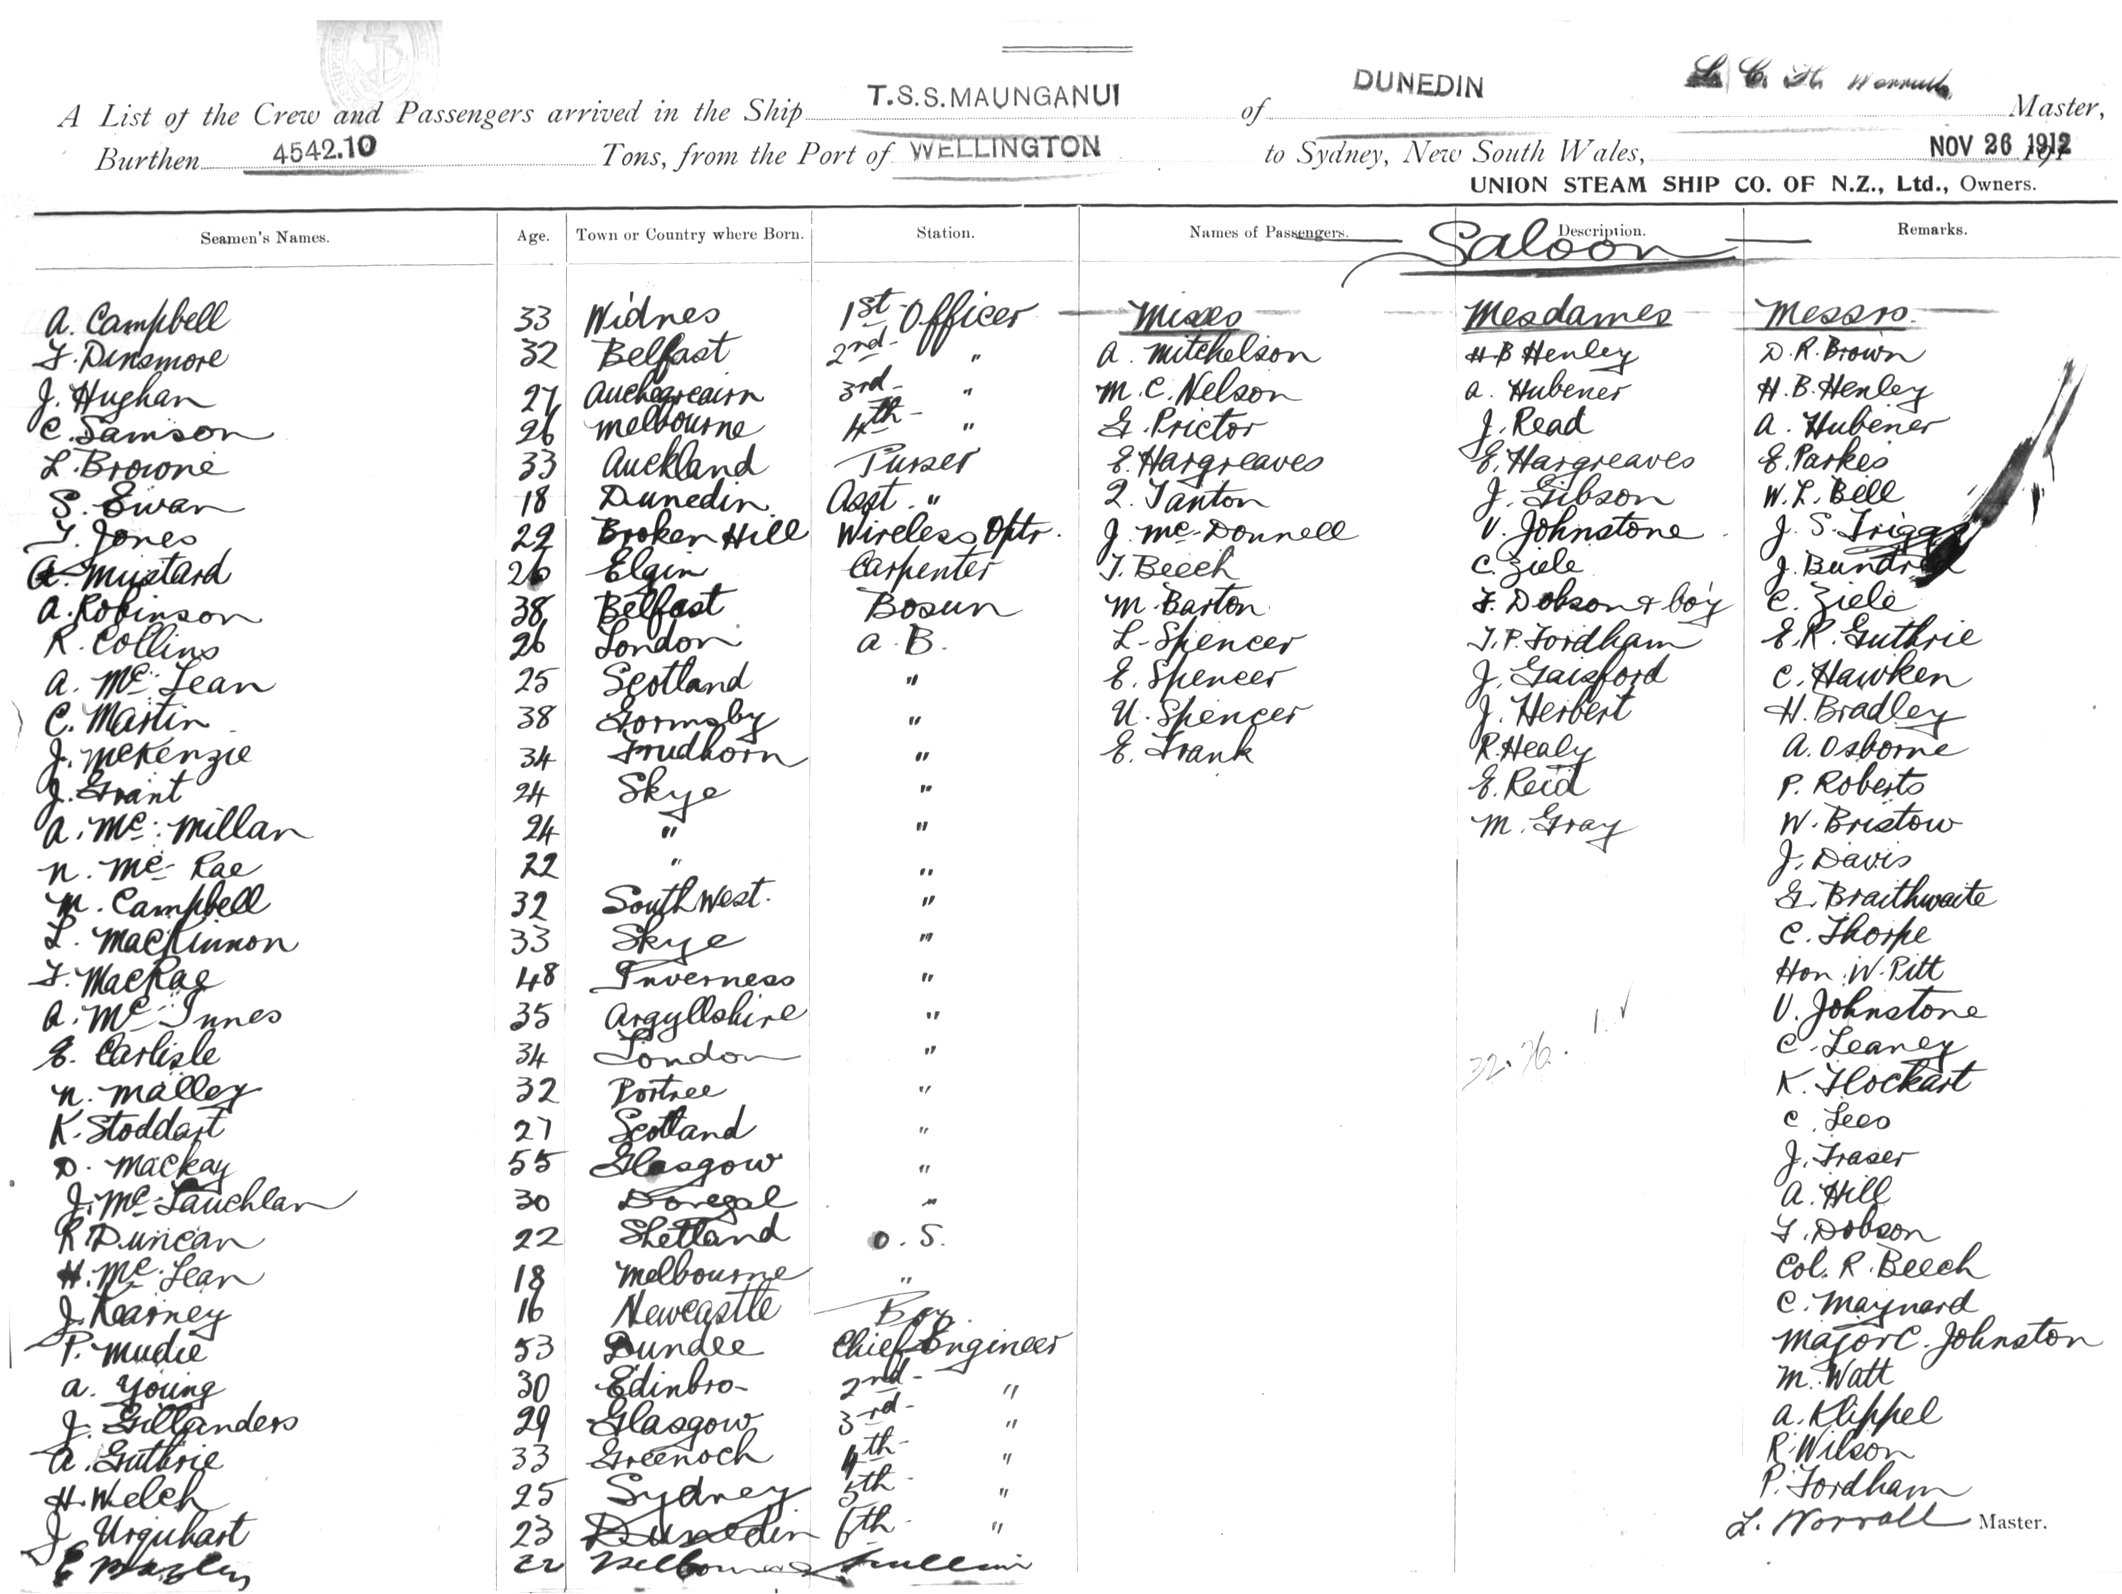 A List of the Crew and Passengers arrived in the Ship T.S.S. MAUNGANUI of DUNEDIN L. C. H. Worrall Master,
Burthen 4542.10 Tons, from the Port of WELLINGTON to Sydney, New South Wales, NOV 26 1912
UNION STEAM SHIP CO. OF N.Z., Ltd., Owners.
Seamen's Names. Age. Town or Country where Born. Station. Names of Passengers. Description. Remarks.
Saloon
A. Campbell 33 Widnes 1st Officer Misses Mesdames Messrs
F. Dinsmore 32 Belfast 2nd " A. Mitchelson H B Henley D. R. Brown
J. Hughan 27 Auchencairn 3rd " M. C. Nelson A. Hubener H. B. Henley
C. Samson 26 Melbourne 4th " G. Prictor J. Read A. Hubener
L. Browne 33 Auckland Purser E. Hargreaves E. Hargreaves E. Parkes
S. Ewan 18 Dunedin Asst. " Tanton J. Gibson W. L. Bell
Jones 29 Broken Hill Wireless Optr. J. McDonnell V. Johnstone J. S. Trigg
A. Mustard 26 Elgin Carpenter T. Beech C. Ziele J. Bundred
A. Robinson 38 Belfast Bosun M. Barton F. Dobson & boy C. Ziele
R. Collins 26 London A. B. L. Spencer T. P. Fordham E. R. Guthrie
A. McLean 25 Scotland " E. Spencer J. Gaisford C. Hawken
C. Martin 38 Gormsby " U. Spencer J. Herbert H. Bradley
J. McKenzie 34 " E. Frank R. Healy A. Osborne
J. Grant 24 Skye " E. Reid P. Roberts
A. McMillan 24 " " M. Gray W. Bristow
N. McRae 22 " " J. Davis
M. Campbell 32 South West. " G. Braithwaite
L. MacKinnon 33 Skye " C. Thorpe
F. MacRae 48 Inverness " Hon. W. Pitt
A. McInnes 35 Argyllshire " V. Johnstone
E. Carlisle 34 London " C. Leaney
N. Malley 32 Portree " K. Flockart
K. Stoddart 27 Scotland " C. Lees
D. Mackay 55 Glasgow " J. Fraser
J. McLauchlan 30 Donegal " A. Hill
R. Duncan 22 Shetland O. S. F. Dobson
H. McLean 18 Melbourne " Col. R. Beech
J. Kearney 16 Newcastle Boy C. Maynard
P. Mudie 53 Dundee Chief Engineer Major C. Johnston
A. Young 30 Edinbro- 2nd " M. Watt
J. Gillanders 29 Glasgow 3rd " A. Klippel
A. Guthrie 33 Greenock 4th " R. Wilson
H. Welch 25 Sydney 5th " P. Fordham
J. Urquhart 23 Dunedin 6th " L. Worrall Master.
E 22 Melbourne